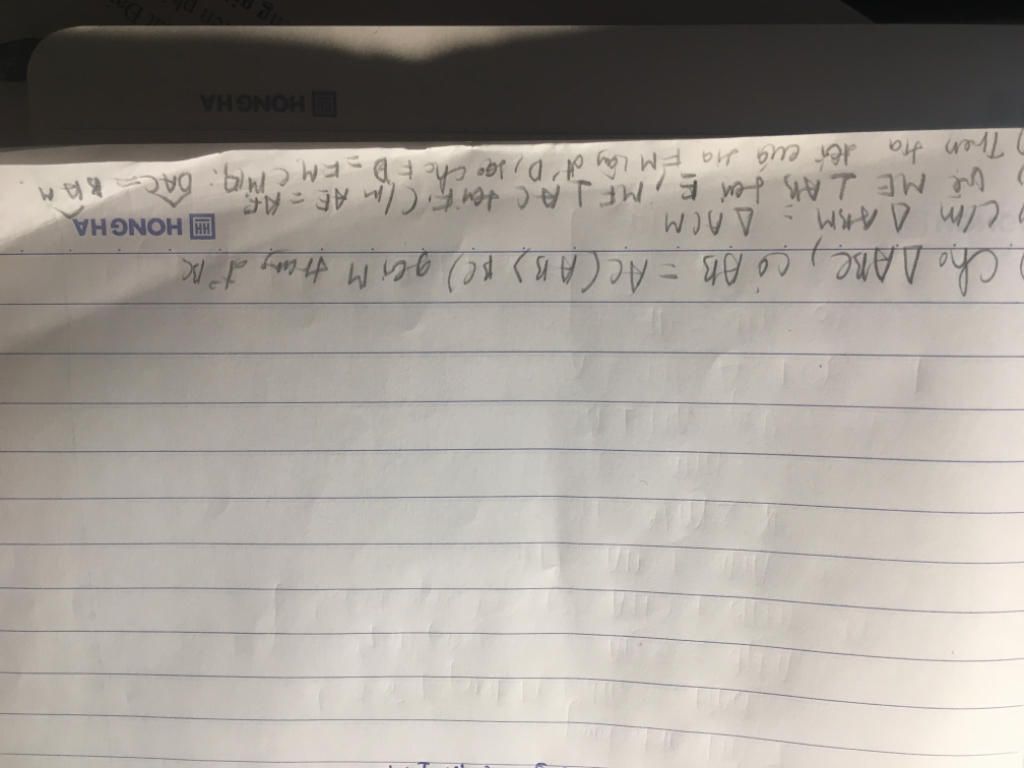 ) Cho ΔABC, có AB = AC (AB > BC) gọi M trung đ² BC
) C/m ΔABM = ΔACM
HONG HA
) Vẽ ME ⊥ AB tại E, MF ⊥ AC tại F. C/m AE = AF
) Trên tia đối của tia FM lấy đ² D, sao cho FD = FM CMR: DAC = BAM.
HONG HA